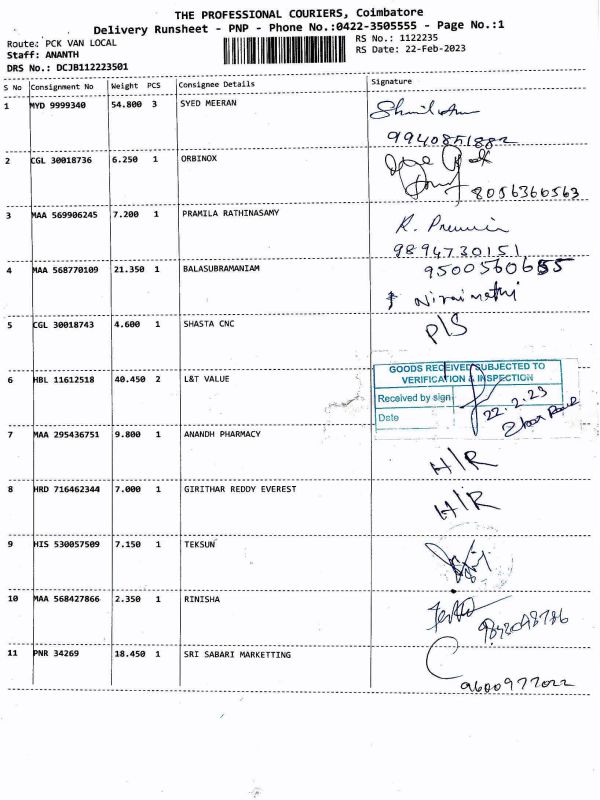 THE PROFESSIONAL COURIERS, Coimbatore
Delivery Runsheet - PNP - Phone No.:0422-3505555 - Page No.:1
Route: PCK VAN LOCAL
RS No.: 1122235
Staff: ANANTH
RS Date: 22-Feb-2023
DRS No.: DCJB112223501
S No Consignment No Weight PCS Consignee Details Signature
1 MYD 9999340 54.800 3 SYED MEERAN
9940851882
2 CGL 30018736 6.250 1 ORBINOX
8056366563
3 MAA 569906245 7.200 1 PRAMILA RATHINASAMY
9894730151
4 MAA 568770109 21.350 1 BALASUBRAMANIAM
9500560655
Niraimathi
5 CGL 30018743 4.600 1 SHASTA CNC P/S
GOODS RECEIVED SUBJECTED TO
VERIFICATION & INSPECTION
6 HBL 11612518 40.450 2 L&T VALUE
Received by sign
Date 22.2.23
7 MAA 295436751 9.800 1 ANANDH PHARMACY H/R
8 HRD 716462344 7.000 1 GIRITHAR REDDY EVEREST H/R
9 HIS 530057509 7.150 1 TEKSUN
10 MAA 568427866 2.350 1 RINISHA
11 PNR 34269 18.450 1 SRI SABARI MARKETTING
9600977022